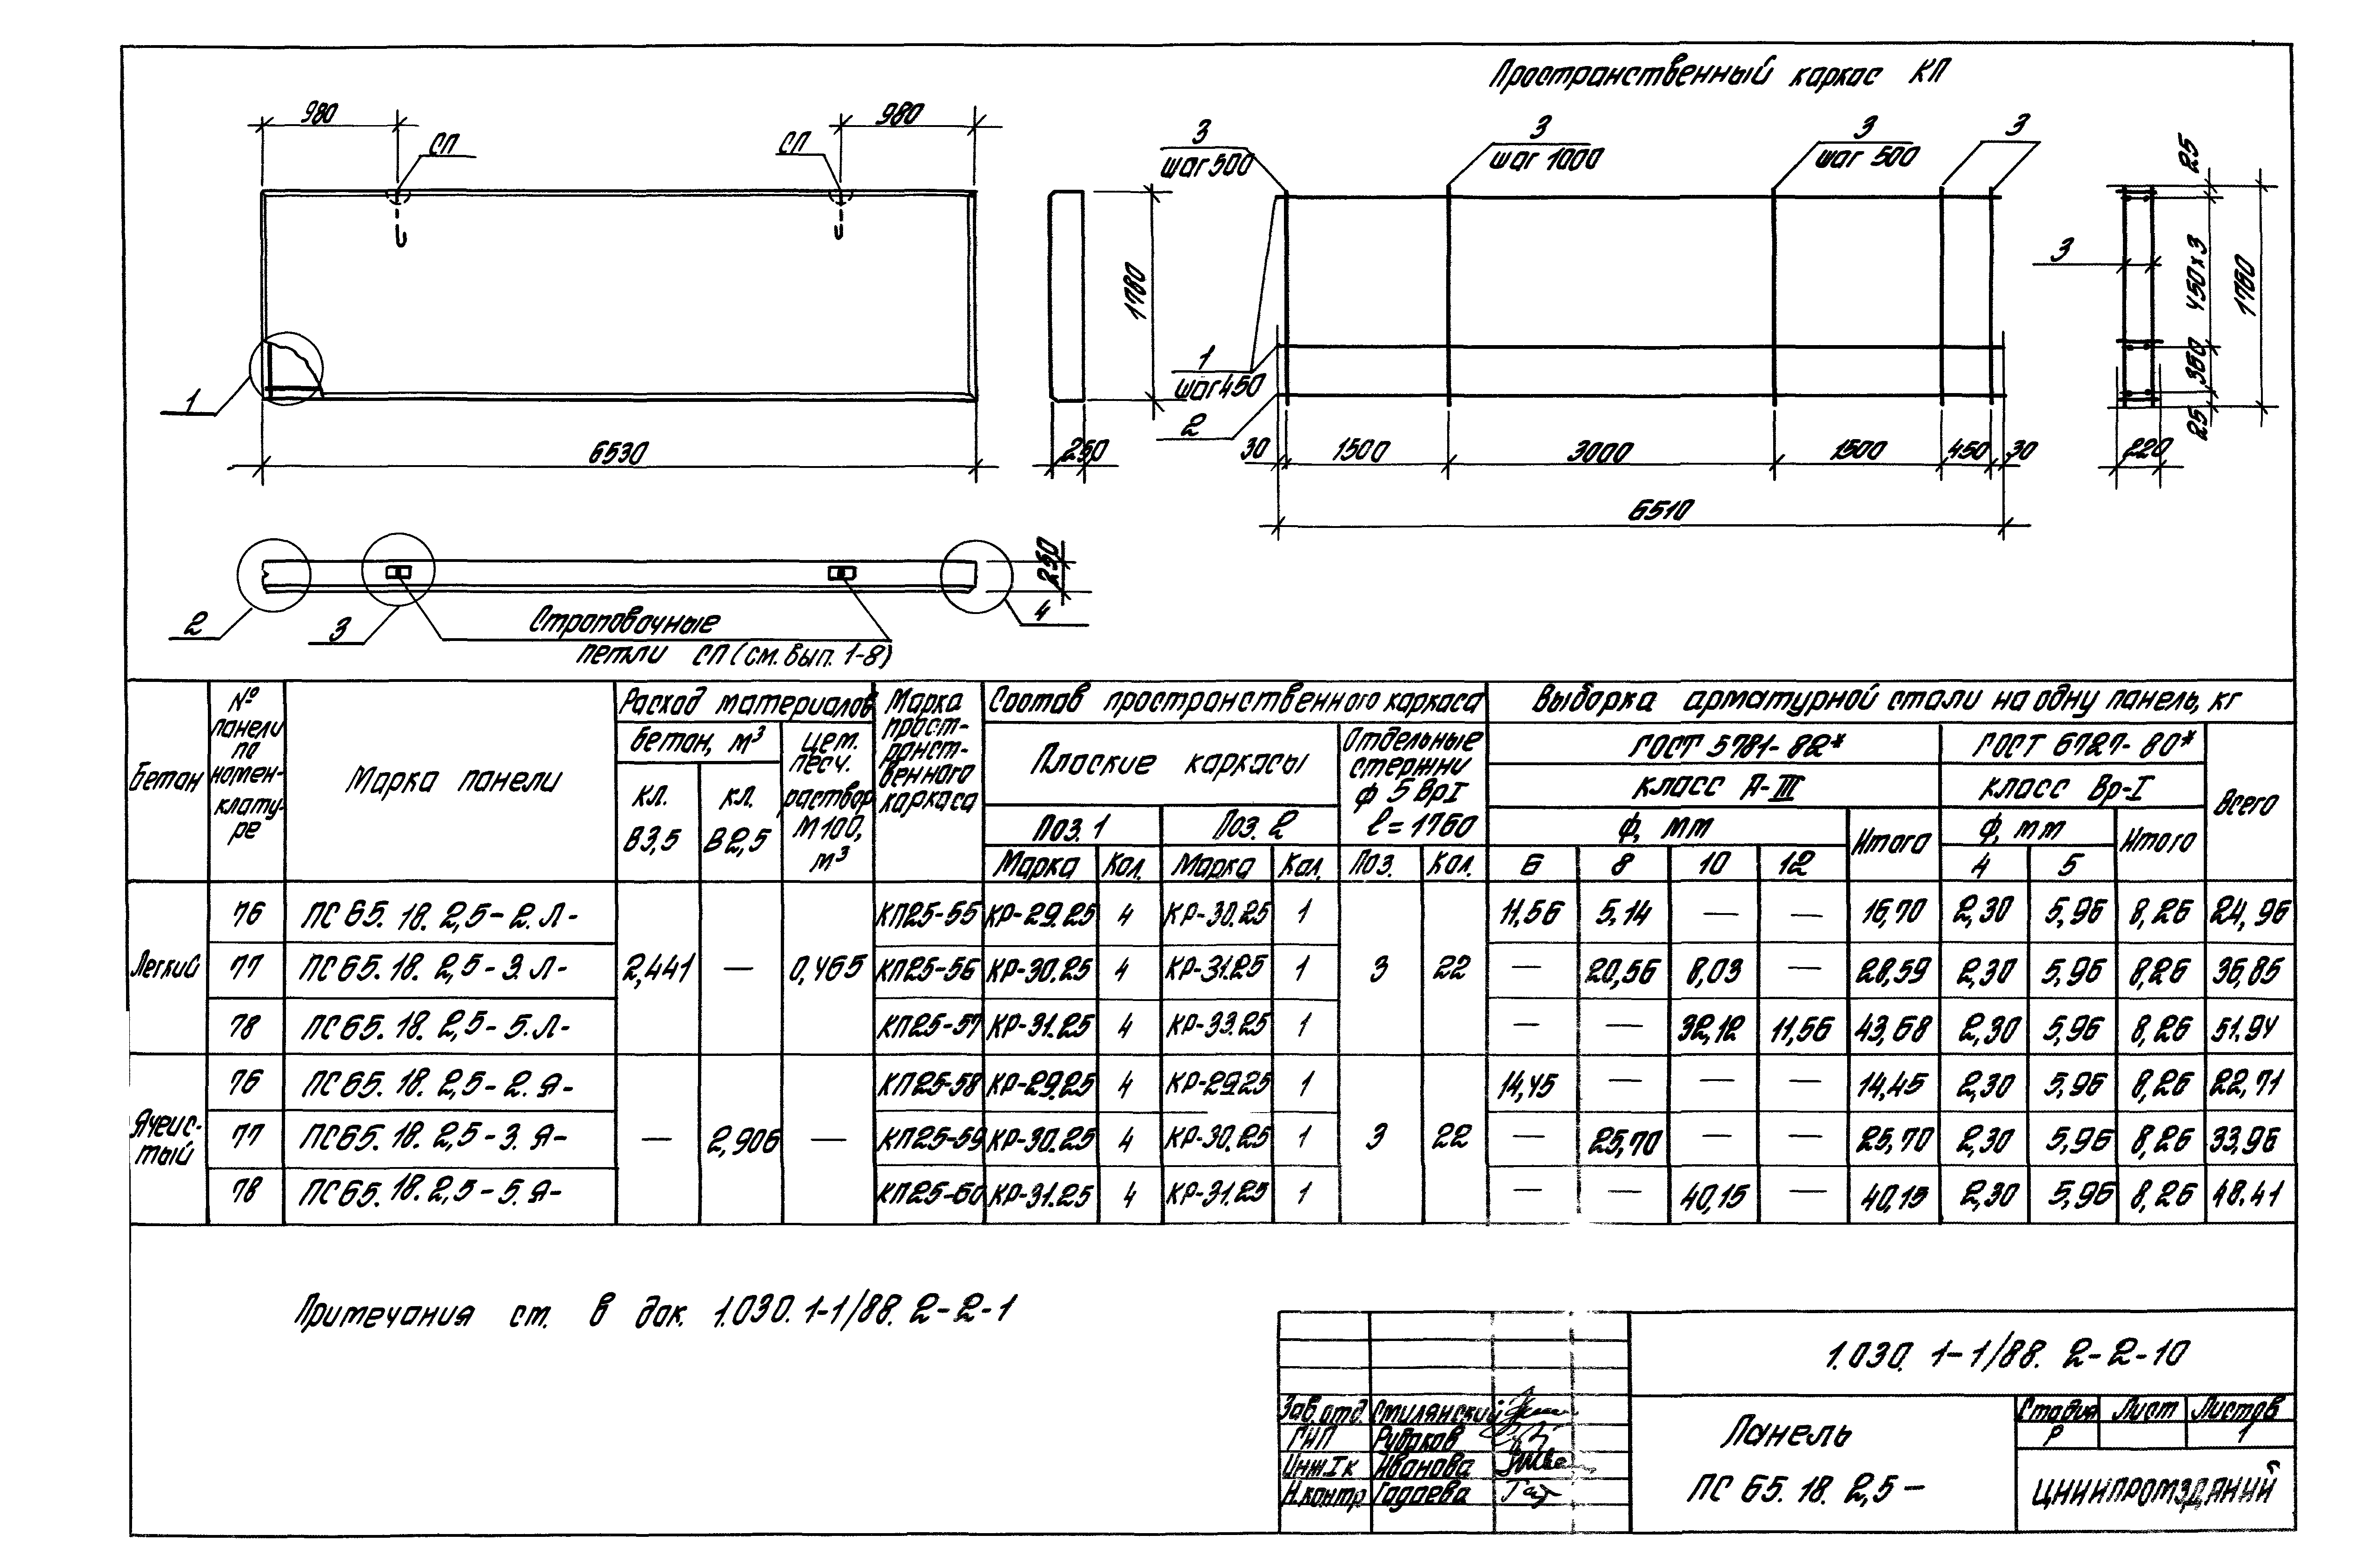 Пространственный каркас КП
980
980
СП
СП
3
шаг 500
3
шаг 1000
3
шаг 500
3
25
1780
3
450х3
1760
1
шаг 450
350
1
2
25
6530
250
30
1500
3000
1500
450
30
220
6510
250
2
3
4
Строповочные
петли СП (см. вып. 1-8)
Бетон
№ панели по номен-клату-ре
Марка панели
Расход материалов
Марка прост-ранст-венного каркаса
Состав пространственного каркаса
Выборка арматурной стали на одну панель, кг
бетон, м³
цем. песч. раствор М100, м³
Плоские каркасы
Отдельные стержни ф 5 ВрI l=1760
ГОСТ 5781-82*
ГОСТ 6727-80*
Всего
кл. В3,5
кл. В2,5
класс А-III
класс Вр-I
Поз. 1
Поз. 2
ф, мм
Итого
ф, мм
Итого
Марка Кол. Марка Кол. Поз. Кол. 6 8 10 12 4 5
Легкий
76 ПС 65. 18. 2,5-2. Л- КП25-55 КР-29.25 4 КР-30.25 1 11,56 5,14 — — 16,70 2,30 5,96 8,26 24,96
77 ПС 65. 18. 2,5-3. Л- 2,441 — 0,465 КП25-56 КР-30.25 4 КР-31.25 1 3 22 — 20,56 8,03 — 28,59 2,30 5,96 8,26 36,85
78 ПС 65. 18. 2,5-5. Л- КП25-57 КР-31.25 4 КР-33.25 1 — — 32,12 11,56 43,68 2,30 5,96 8,26 51.94
Ячеис-
тый
76 ПС 65. 18. 2,5-2. Я- КП25-58 КР-29.25 4 КР-29.25 1 14,45 — — — 14,45 2,30 5,96 8,26 22,71
77 ПС 65. 18. 2,5-3. Я- — 2,906 — КП25-59 КР-30.25 4 КР-30.25 1 3 22 — 25,70 — — 25,70 2,30 5,96 8,26 33,96
78 ПС 65. 18. 2,5-5. Я- КП25-60 КР-31.25 4 КР-31.25 1 — — 40,15 — 40,15 2,30 5,96 8,26 48.41
Примечания см. в док. 1.030. 1-1/88. 2-2-1
1.030. 1-1/88. 2-2-10
Зав. отд. Смилянский
ГИП
Инж I к Иванова
Н.контр Гадаева
Панель
ПС 65. 18. 2,5-
Стадия Лист Листов
Р 1
ЦНИИПРОМЗДАНИЙ